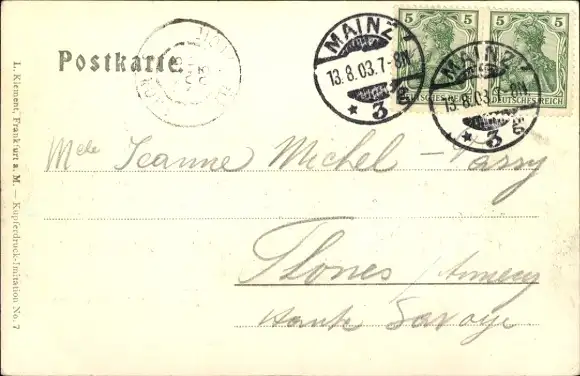 Postkarte
MAINZ
13.8.03.7-8N.
* 3
MAINZ
13.8.03.7-8N.
* 3
5 5
DEUTSCHES REICH
5 5
DEUTSCHES REICH
Melle Jeanne Michel - Passy
Annecy
Haute Savoye
L. Klement, Frankfurt a. M. — Kupferdruck-Imitation No. 7